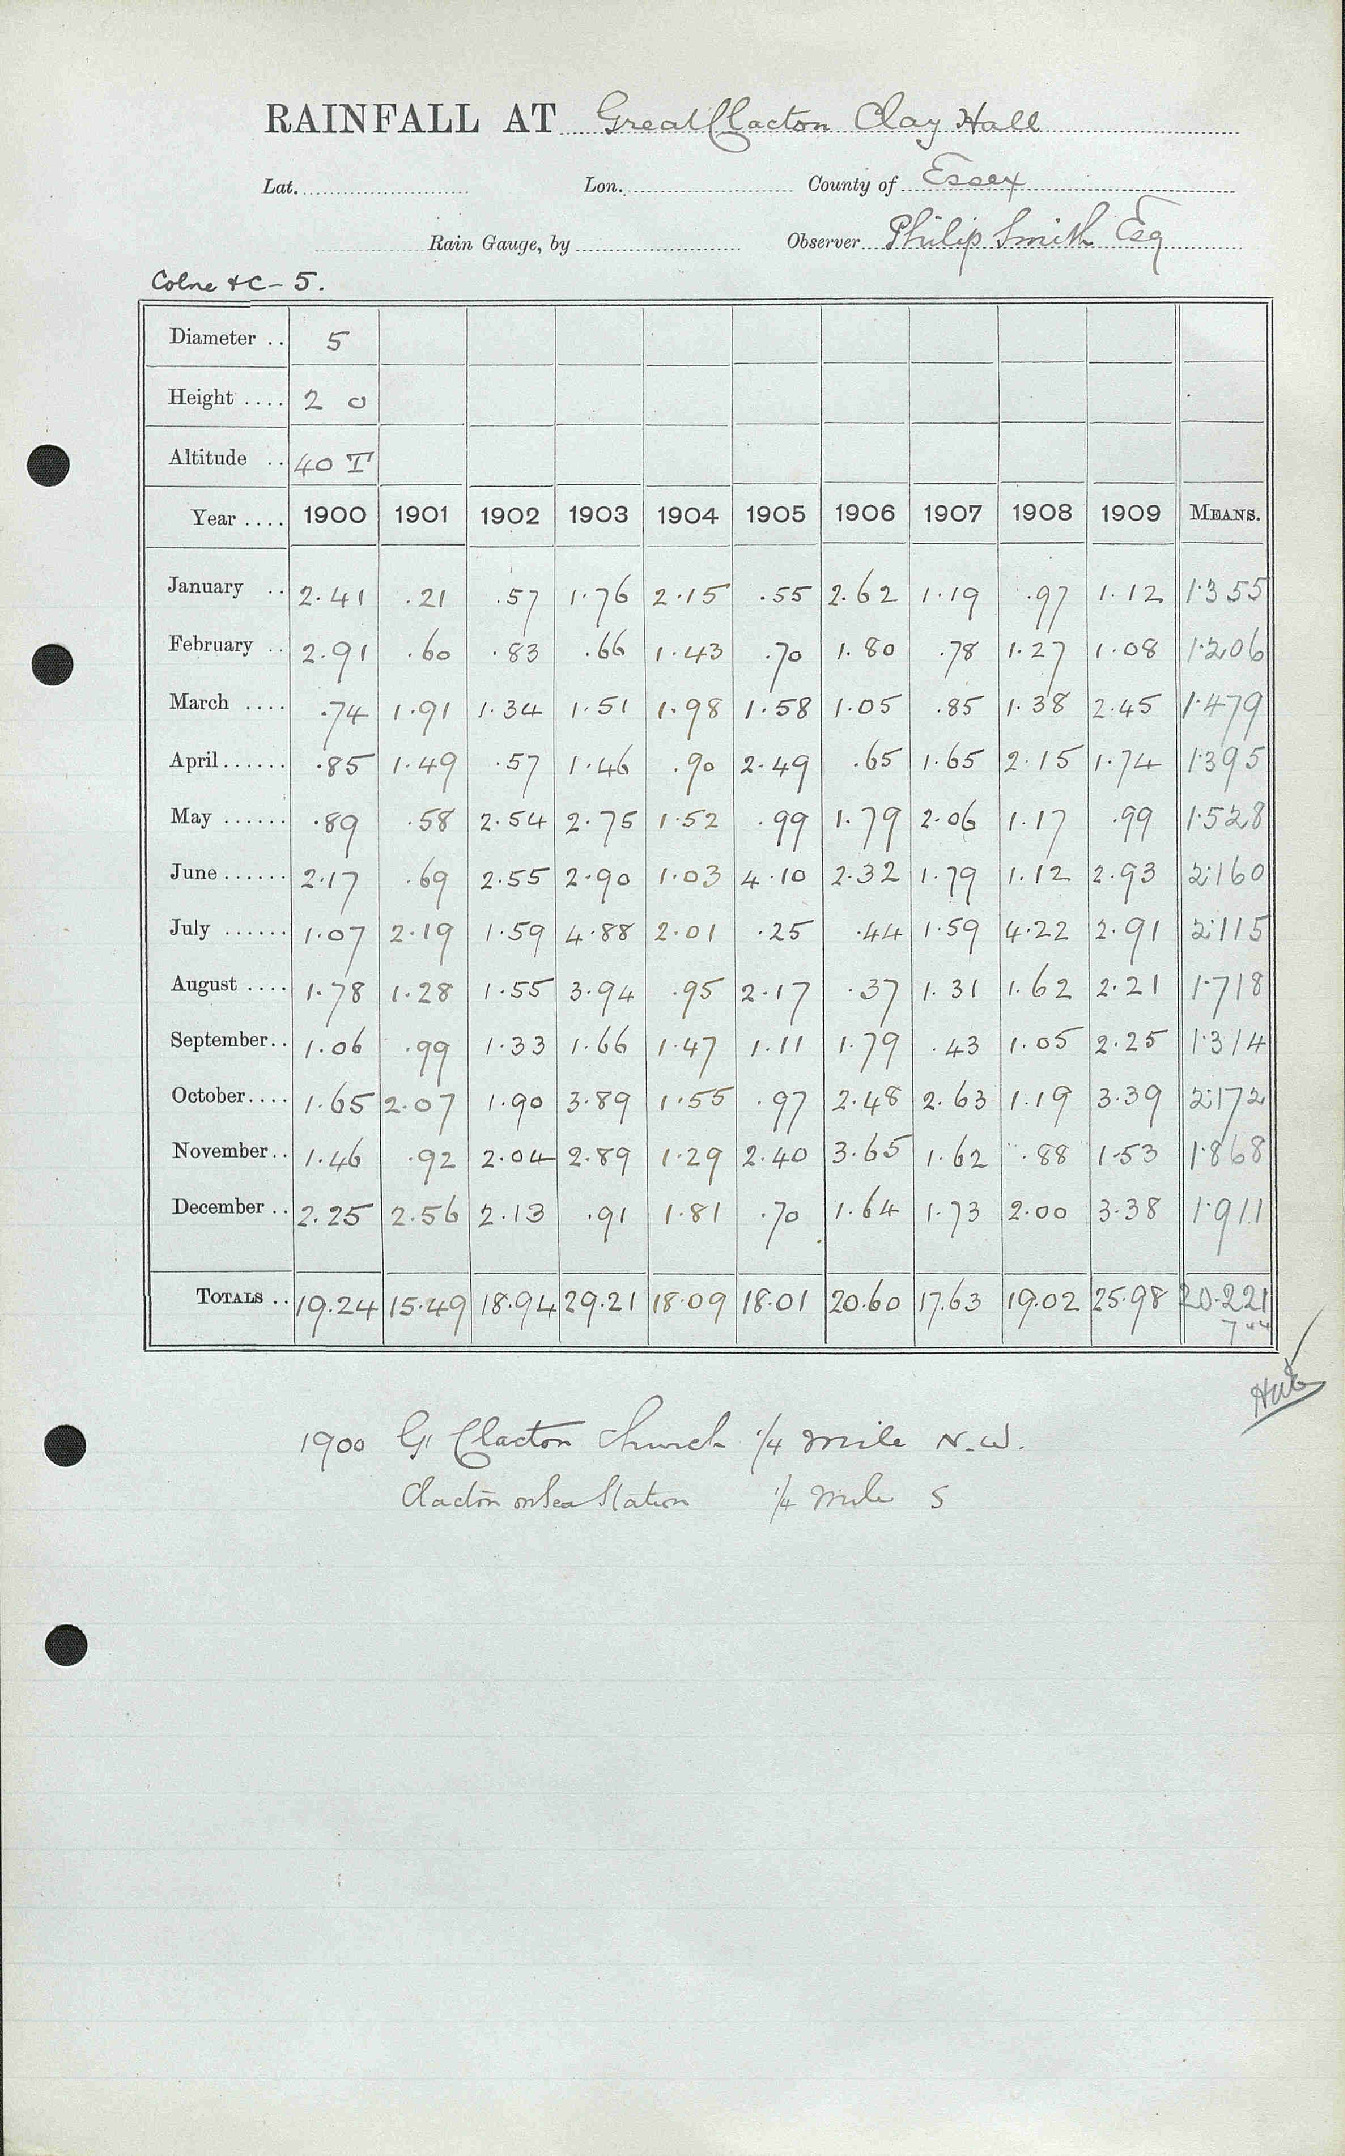 RAINFALL AT Great Clacton Clay Hall
Lat. Lon. County of Essex
Rain Gauge, by Observer Philip Smith Esq
Colne &C - 5.
Diameter .. 5
Height .... 2 0
Altitude .. 40 T
Year .... 1900 1901 1902 1903 1904 1905 1906 1907 1908 1909 MEANS.
January .. 2.41 .21 .57 1.76 2.15 .55 2.62 1.19 .97 1.12 1.355
February .. 2.91 .60 .83 .66 1.43 .70 1.80 .78 1.27 1.08 1.206
March .... .74 1.91 1.34 1.51 1.98 1.58 1.05 .85 1.38 2.45 1.479
April...... .85 1.49 .57 1.46 .90 2.49 .65 1.65 2.15 1.74 1.395
May ...... .89 .58 2.54 2.75 1.52 .99 1.79 2.06 1.17 .99 1.528
June ...... 2.17 .69 2.55 2.90 1.03 4.10 2.32 1.79 1.12 2.93 2.160
July ...... 1.07 2.19 1.59 4.88 2.01 .25 .44 1.59 4.22 2.91 2.115
August .... 1.78 1.28 1.55 3.94 .95 2.17 .37 1.31 1.62 2.21 1.718
September.. 1.06 .99 1.33 1.66 1.47 1.11 1.79 .43 1.05 2.25 1.314
October.... 1.65 2.07 1.90 3.89 1.55 .97 2.48 2.63 1.19 3.39 2.172
November.. 1.46 .92 2.04 2.89 1.29 2.40 3.65 1.62 .88 1.53 1.868
December .. 2.25 2.56 2.13 .91 1.81 .70 1.64 1.73 2.00 3.38 1.911
TOTALS .. 19.24 15.49 18.94 29.21 18.09 18.01 20.60 17.63 19.02 25.98 20.221
1900 Gt Clacton Church 1/4 mile N.W.
Clacton on Sea Station 1/4 mile S